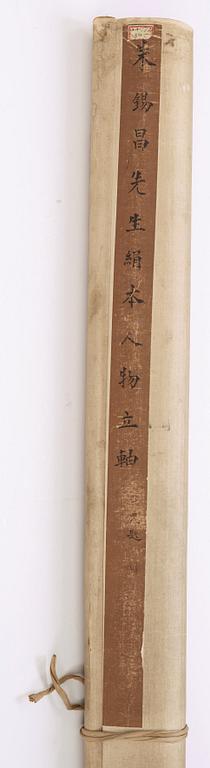 朱錫昌先生絹本人物立軸